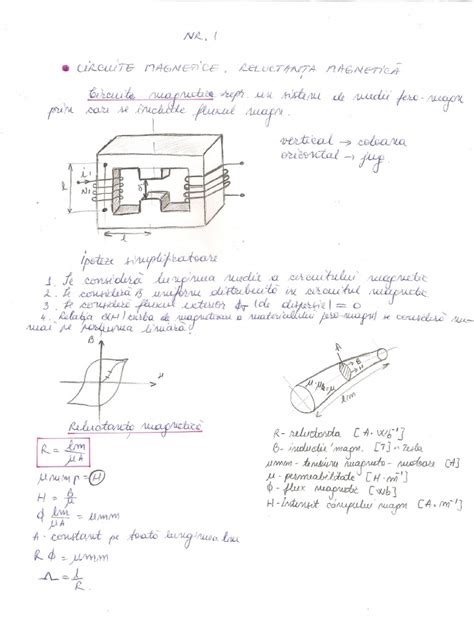 NR. 1
• CIRCUITE MAGNETICE. RELUCTANȚA MAGNETICĂ
Circuite magnetice repr. un sistem de medii fero-magn
prin care se închide fluxul magn.
vertical → coloana
orizontal → jug
i1
N1
h
δ
l
Ipoteze simplificatoare
1. Se consideră lungimea medie a circuitului magnetic
2. Se consideră B uniform distribuită în circuitul magnetic
3. Se consideră fluxul exterior (de dispersie) = 0
4. Relația B(H) (curba de magnetizare a materialului fero-magn) se consideră nu-
mai pe porțiunea liniară.
B
H
A
B
lm
Reluctanța magnetică
R = lm / μA
H = B / μ
Φ lm / μA = umm
A - constant pe toată lungimea lm
R Φ = umm
Λ = 1 / R
R - reluctanta [A·Wb⁻¹]
B - inducție magn. [T] - Tesla
umm - tensiune magneto-motoare [A]
μ - permeabilitate [H·m⁻¹]
Φ - flux magnetic [Wb]
H - Intensit câmpului magn [A·m⁻¹]